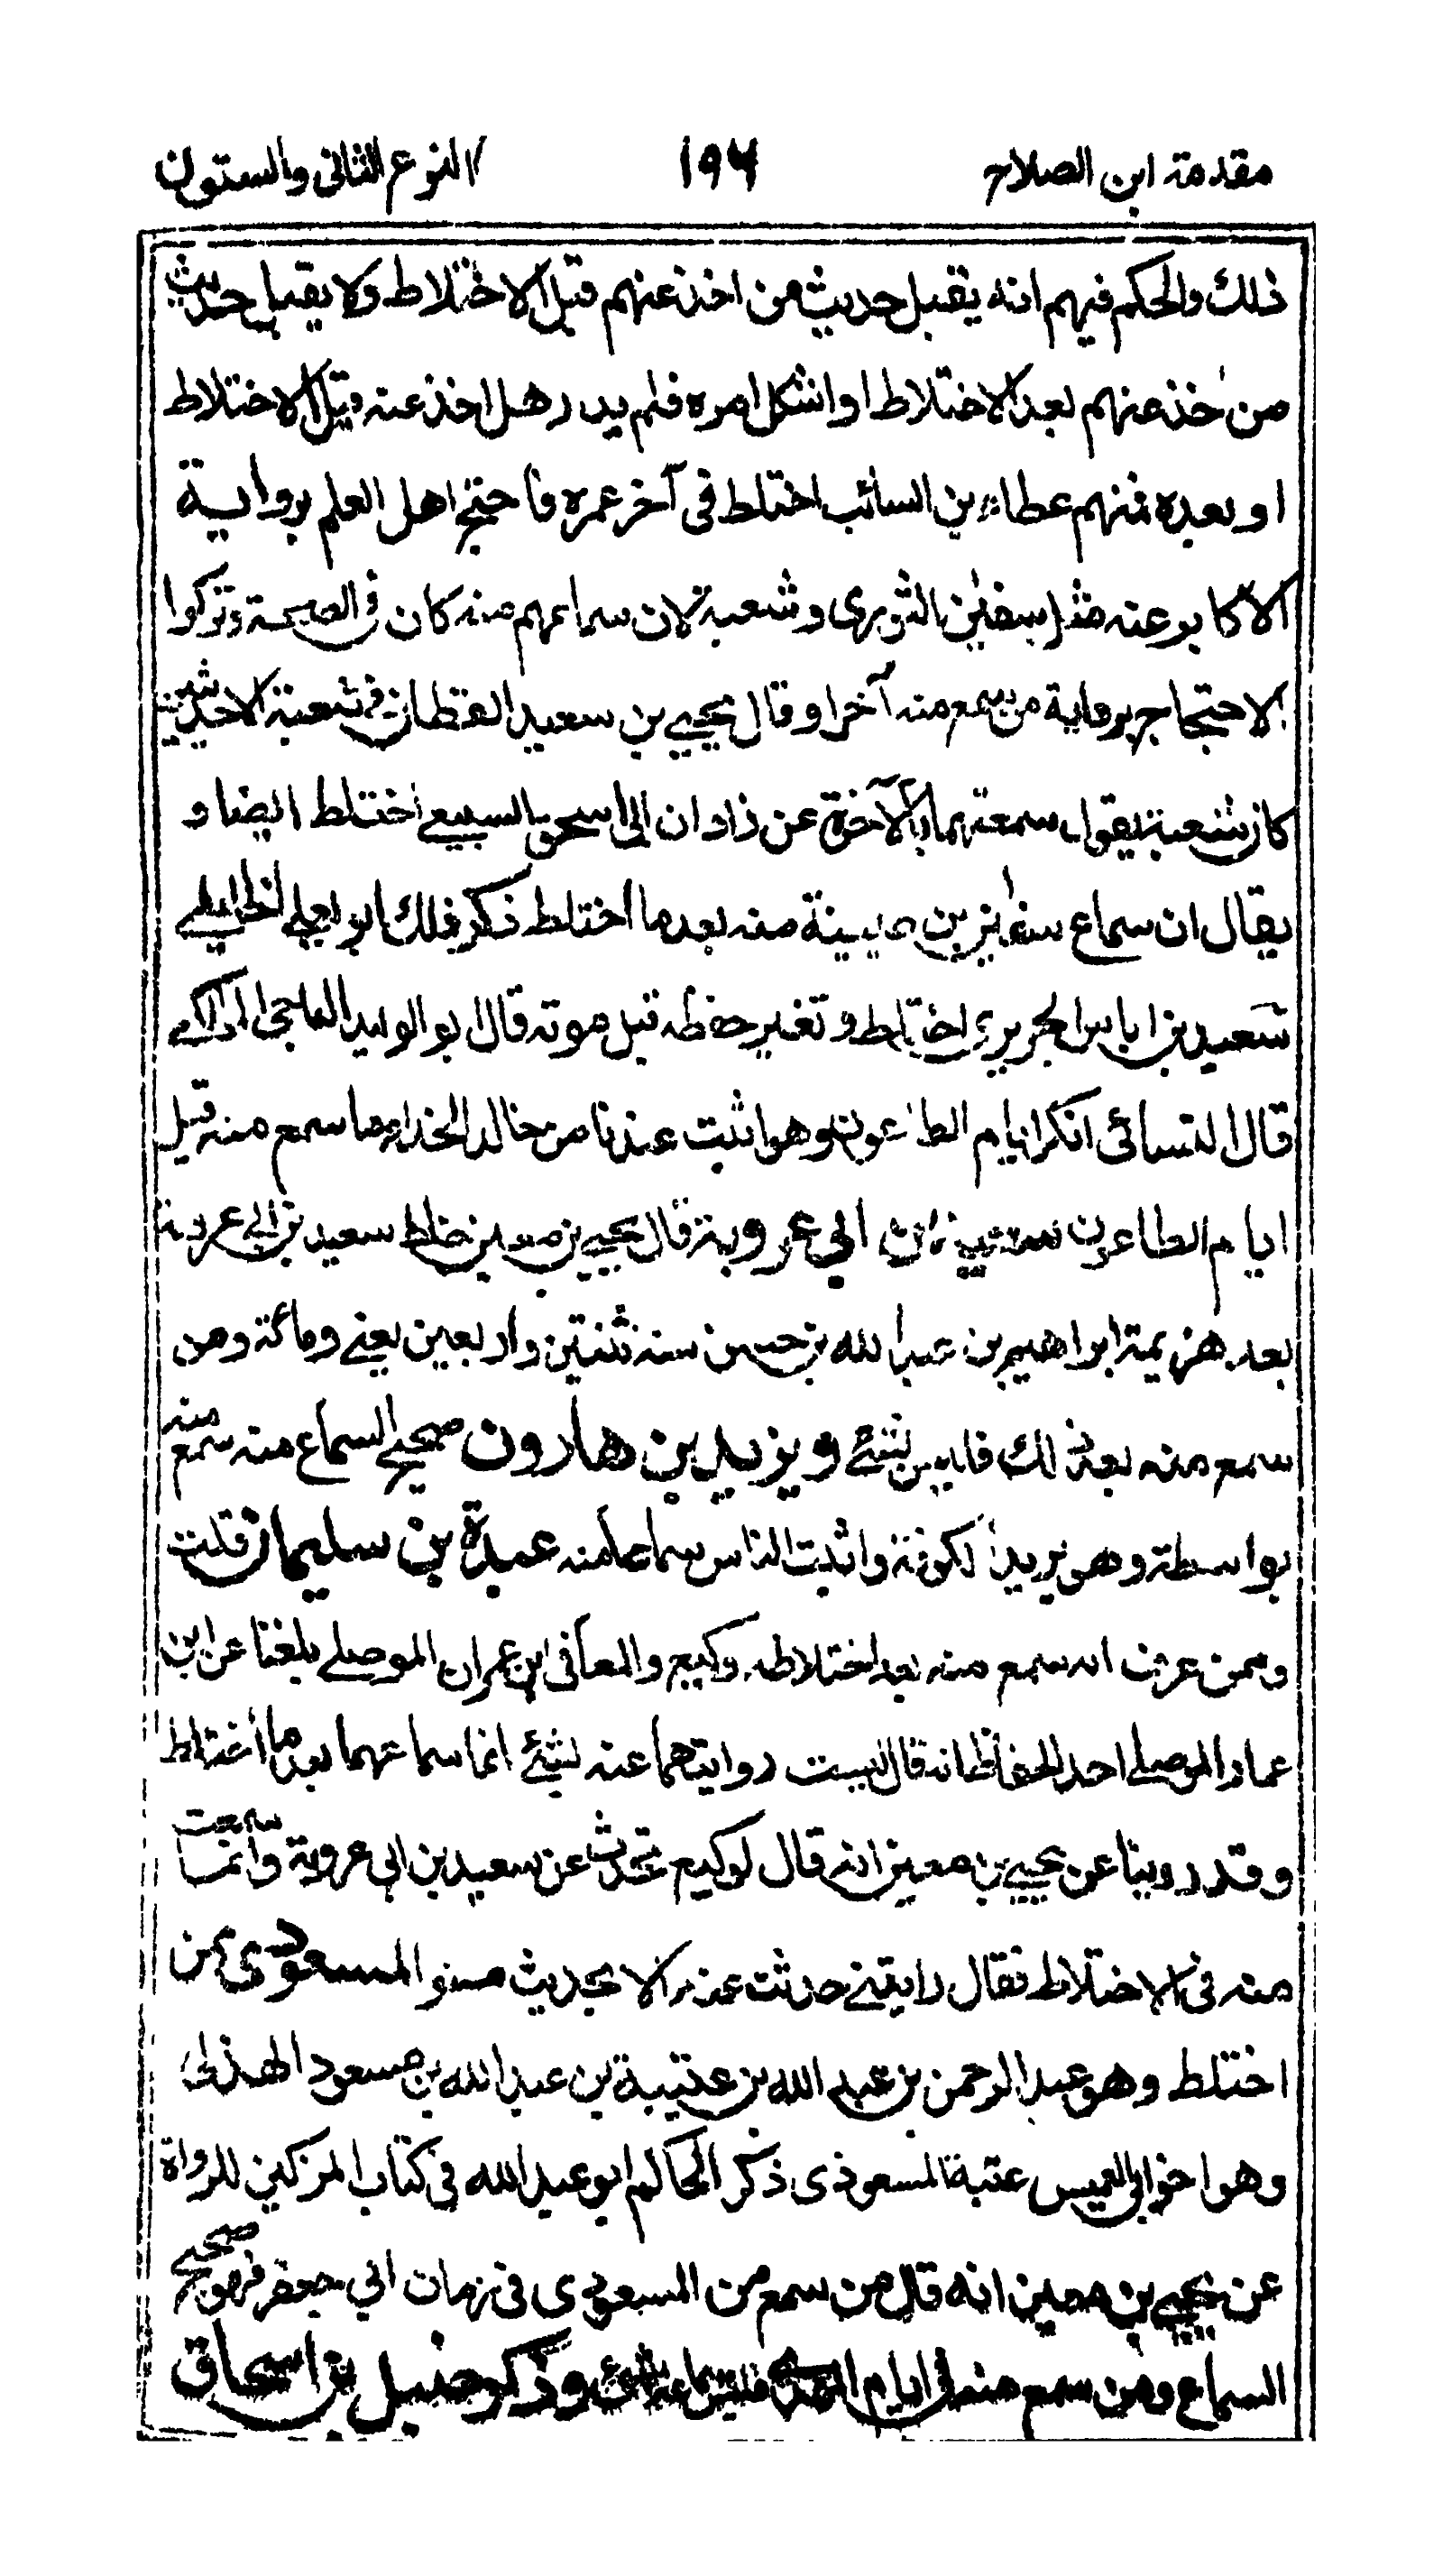 مقدمة ابن الصلاح ١٩٦ النوع الثانى والستون
ذلك والحكم فيهم انه يقبل حديث من اخذ عنهم قبل الاختلاط ولا يقبل حديث
من أخذ عنهم بعد الاختلاط او اشكل امره فلم يدر هل اخذ عنه قبل الاختلاط
او بعده فمنهم عطاء بن السائب اختلط فى آخر عمره فاحتج اهل العلم برواية
الاكابر عنه مثل سفيٰن الثورى وشعبة لان سماعهم منه كان فى الصحة وتركوا
الاحتجاج برواية من سمع منه آخرا وقال يحيى بن سعيد القطان فى شعبة الا حديثين
كان شعبة يقول سمعتهما بالآخرة عن زاذان ابى اسحق السبيعى اختلط ايضا و
يقال ان سماع سفيٰن بن عيينة منه بعد ما اختلط ذكر ذلك ابو يعلى الخليلى
سعيد بن اياس الجريرى اختلط وتغير حفظه قبل موته قال ابو الوليد الباجى المالكى
قال النسائى انكر ايام الطاعون وهو اثبت عندنا من خالد الحذاء ما سمع منه قبل
ايام الطاعون سعيد بن ابي عروبة قال يحيى بن معين خلط سعيد بن ابى عروبة
بعد هزيمة ابراهيم بن عبد الله بن حسن سنة ثنتين واربعين يعنى ومائة ومن
سمع منه بعد ذلك فليس بشئ ويزيد بن هارون صحيح السماع منه سمع منه
بواسطة وهو يريد الكوفة واثبت الناس سماعا منه عبدة بن سليمان قلت
وممن عرف انه سمع منه بعد اختلاطه وكيع والمعافى ابن عمران الموصلى بلغنا عن ابن
عمار الموصلى احد الحفاظ انه قال ليست روايتهما عنه بشئ انما سماعهما بعد ما اختلط
وقد روينا عن يحيى بن معين انه قال لوكيع تحدث عن سعيد بن ابى عروبة وانما سمعت
منه فى الاختلاط فقال رايتنى حدثت عنه الا بحديث مستو المسعودى ممن
اختلط وهو عبد الرحمن بن عبد الله بن عتيبة بن عبد الله بن مسعود الهذلى
وهو اخو ابى العميس عتبة المسعودى ذكر الحاكم ابو عبد الله فى كتاب المزكين للرواة
عن يحيى بن معين انه قال من سمع من المسعودى فى زمان ابي جعفر فهو صحيح
السماع ومن سمع منه فى ايام المهدى فليس سماعه بشئ وذكر حنبل بن اسحاق